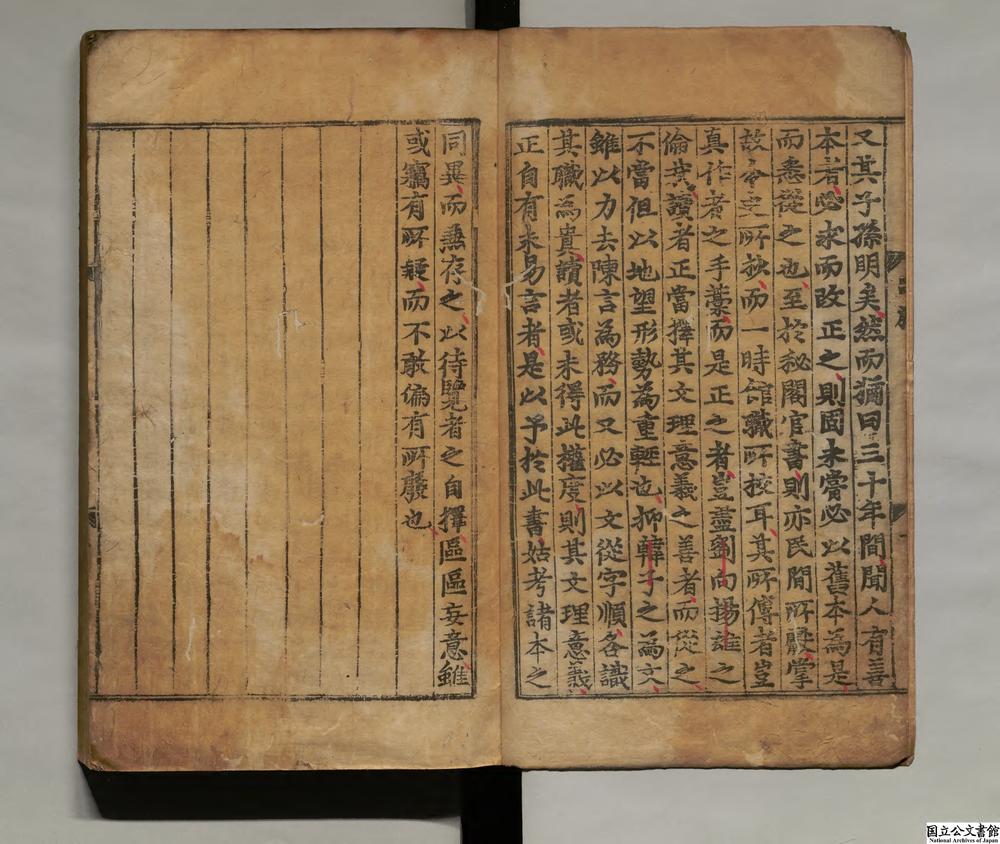 又其子孫明矣然而猶曰三十年間聞人有善
本者必求而改正之則固未嘗必以舊本為是
而悉從之也至於秘閣官書則亦民間所獻掌
故令史所抄而一時館職所校耳其所傳者豈
真作者之手藁而是正之者豈盡劉向揚雄之
倫哉讀者正當擇其文理意義之善者而從之
不當但以地望形勢為重輕也抑韓子之為文
雖以力去陳言為務而又必以文從字順各識
其職為貴讀者或未得此權度則其文理意義
正自有未易言者是以予於此書姑考諸本之
同異而兼存之以待覽者之自擇區區妄意雖
或竊有所疑而不敢偏有所廢也
国立公文書館
National Archives of Japan